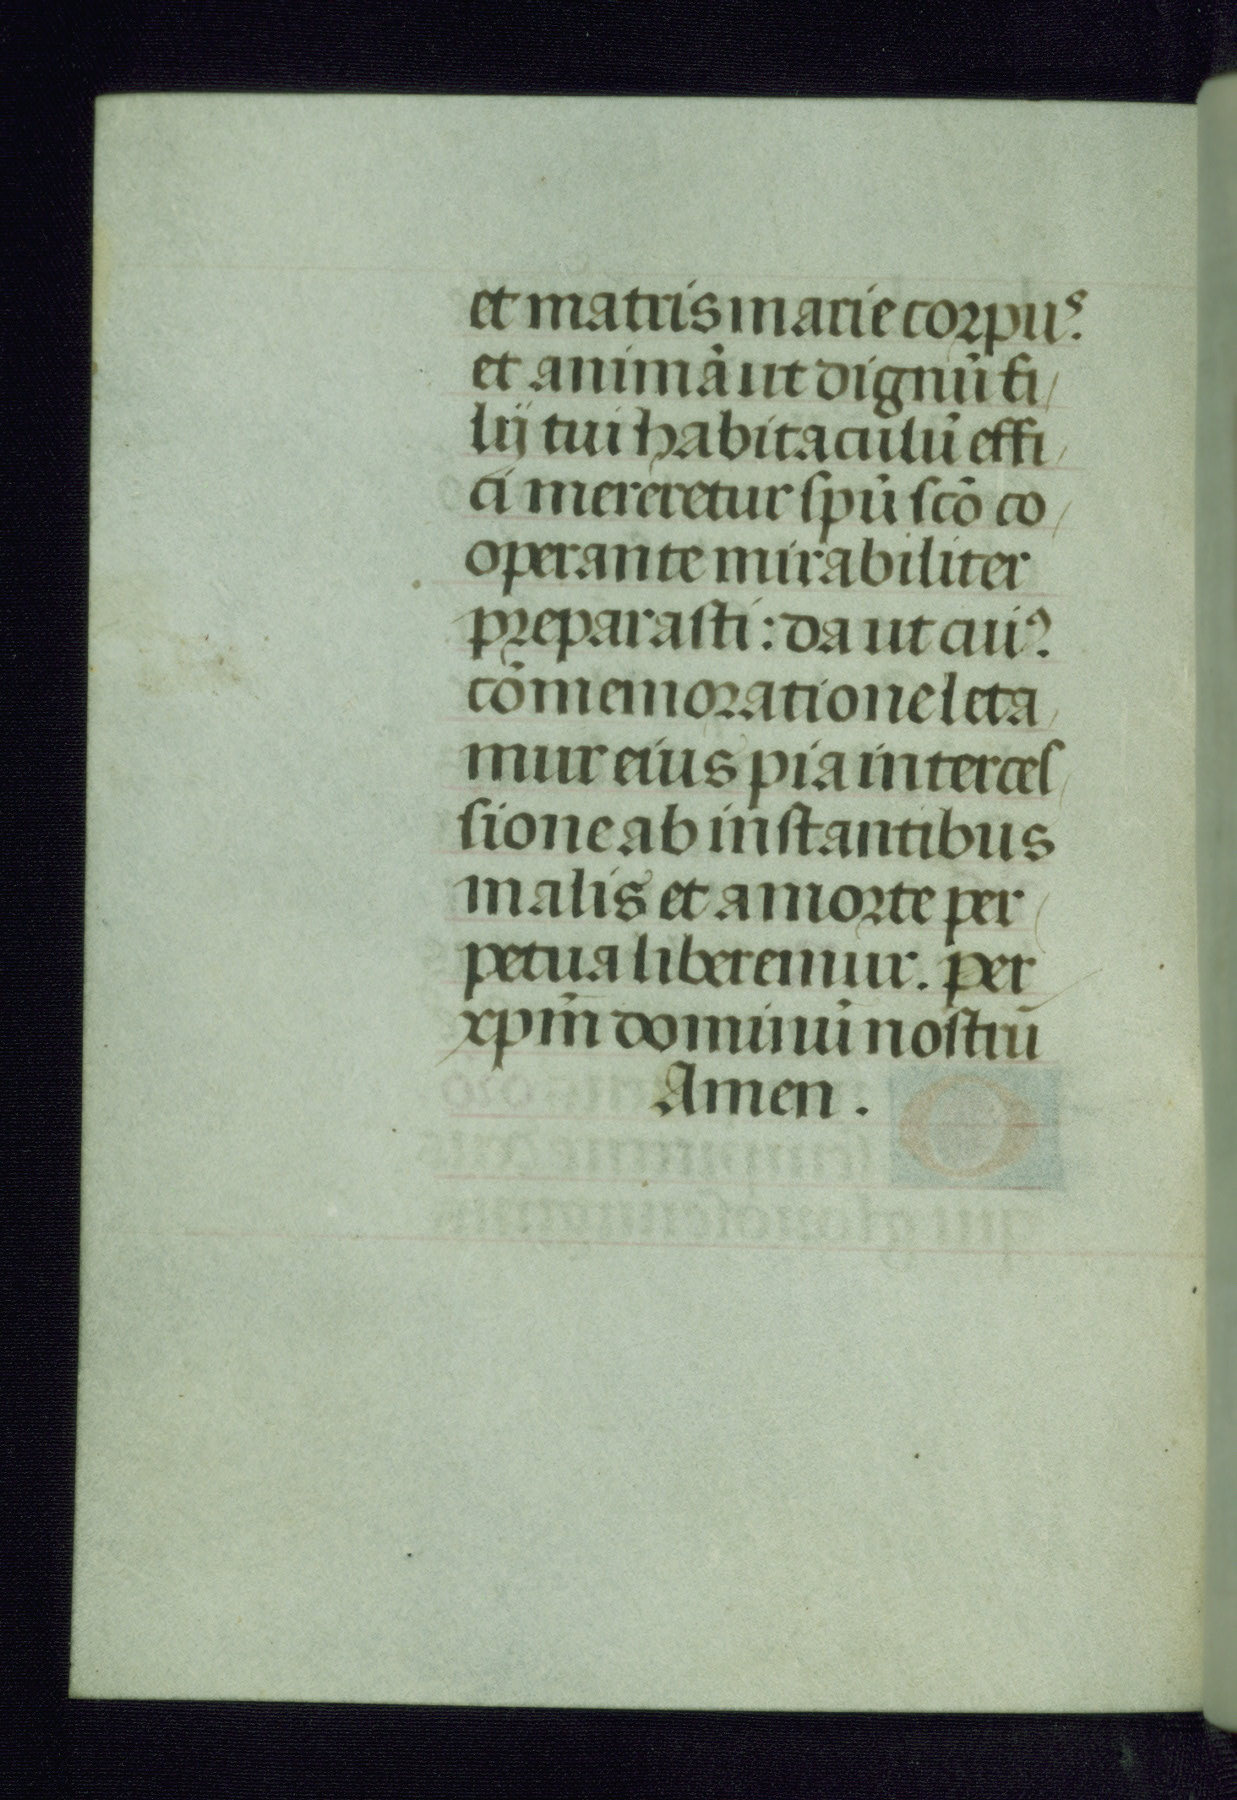 et matris marie corpuˢ.
et animā ut dignū fi/
lij tui habitaculū effi/
ci mereretur spū scō co/
operante mirabiliter
preparasti: da ut cuiꝰ.
cōmemoratione leta/
mur eius pia interces/
sione ab instantibus
malis et a morte per/
petua liberemur. per
xpm̄ dominū nostrū
Amen.